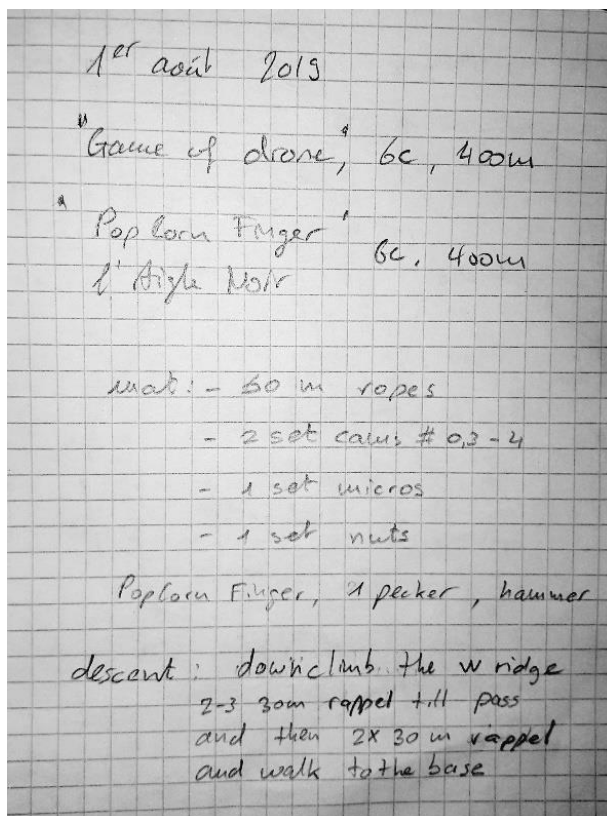 1er août 2019
"Game of drone", 6c, 400m
"Pop Corn Finger"
6c, 400m
l'Aigle Noir
mat: - 60 m ropes
- 2 set cams # 0,3-4
- 1 set micros
- 1 set nuts
PopCorn Finger, 1 pecker, hammer
descent: downclimb the W ridge
2-3 30m rappel till pass
and then 2x 30m rappel
and walk to the base